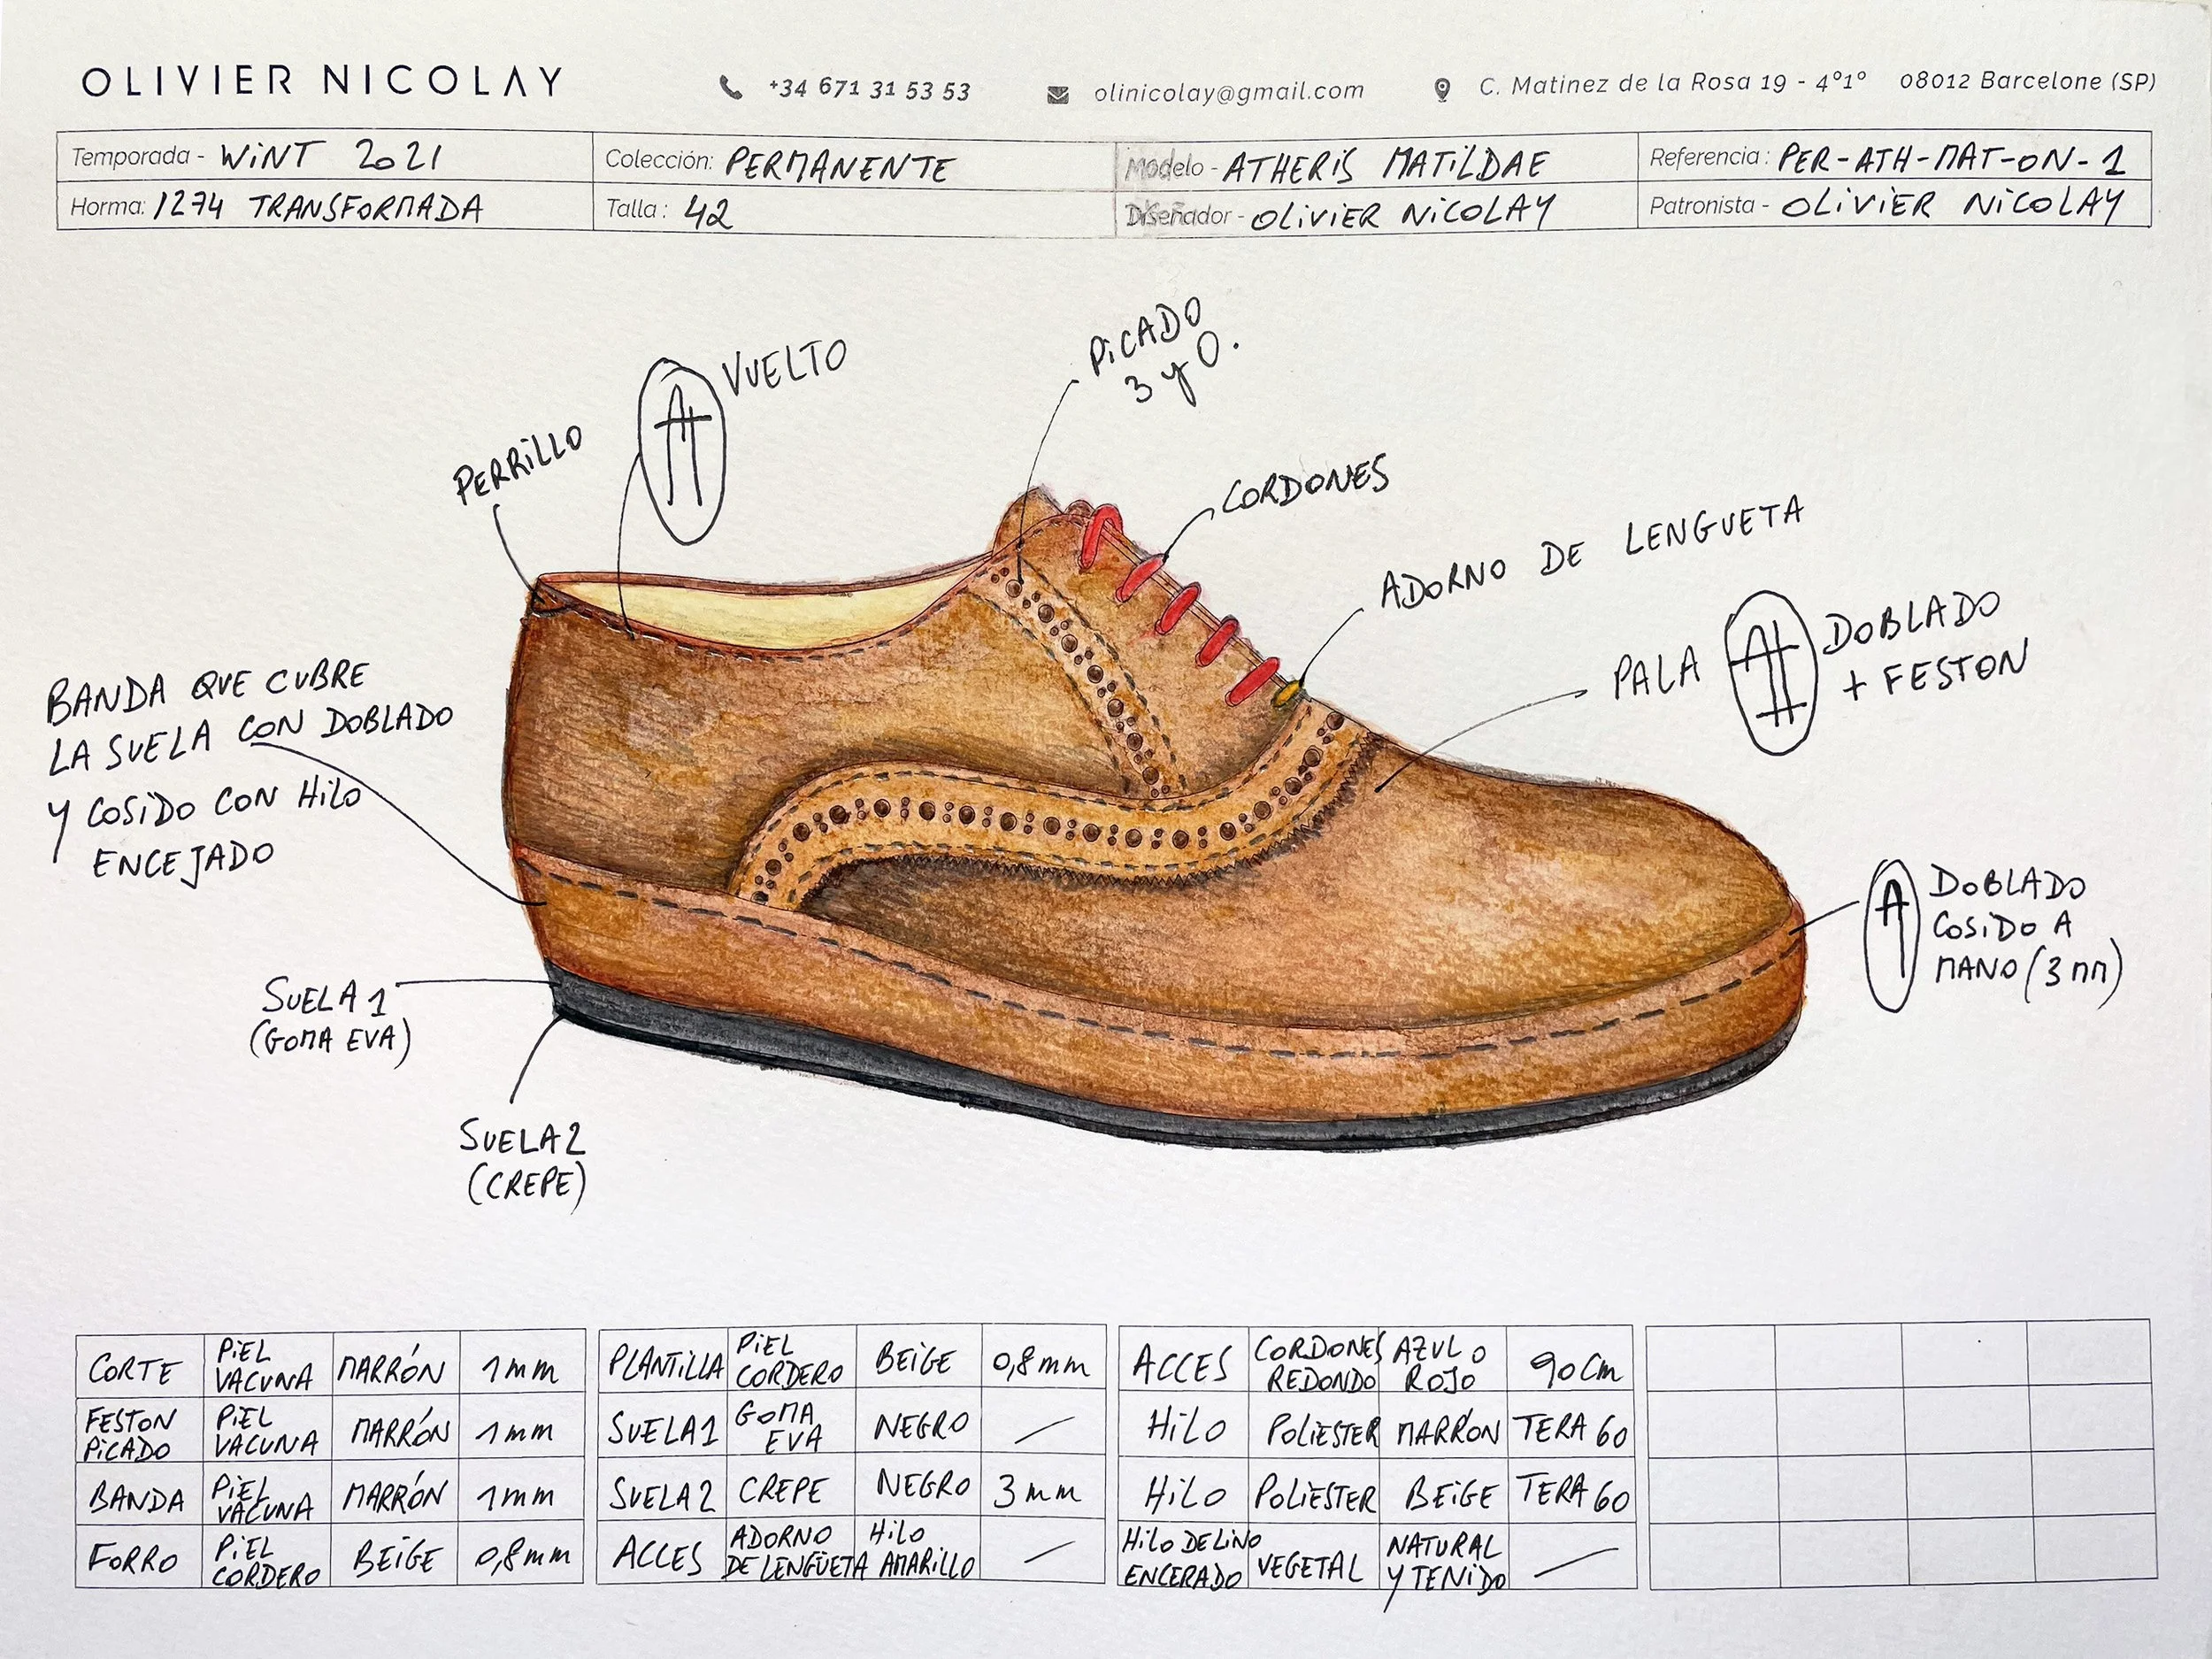 OLIVIER NICOLAY
+34 671 31 53 53
olinicolay@gmail.com
C. Matinez de la Rosa 19 - 4º1º 08012 Barcelone (SP)
Temporada - WINT 2021
Colección: PERMANENTE
Modelo - ATHERIS MATILDAE
Referencia: PER-ATH-MAT-ON-1
Horma: 1274 TRANSFORMADA
Talla: 42
Diseñador - OLIVIER NICOLAY
Patronista - OLIVIER NICOLAY
PICADO
3 y 0.
VUELTO
PERRILLO
CORDONES
ADORNO DE LENGUETA
PALA
DOBLADO
+ FESTON
BANDA QUE CUBRE
LA SUELA CON DOBLADO
Y COSIDO CON HILO
ENCEJADO
DOBLADO
COSIDO A
MANO (3 mm)
SUELA 1
(GOMA EVA)
SUELA 2
(CREPE)
CORTE PIEL VACUNA MARRÓN 1mm
FESTON PICADO PIEL VACUNA MARRÓN 1mm
BANDA PIEL VACUNA MARRÓN 1mm
FORRO PIEL CORDERO BEIGE 0,8mm
PLANTILLA PIEL CORDERO BEIGE 0,8mm
SUELA1 GOMA EVA NEGRO /
SUELA2 CREPE NEGRO 3mm
ACCES ADORNO DE LENGÜETA HILO AMARILLO /
ACCES CORDONES REDONDO AZUL O ROJO 90cm
HILO POLIESTER MARRÓN TERA 60
HILO POLIESTER BEIGE TERA 60
HILO DE LINO ENCERADO VEGETAL NATURAL Y TENIDO /